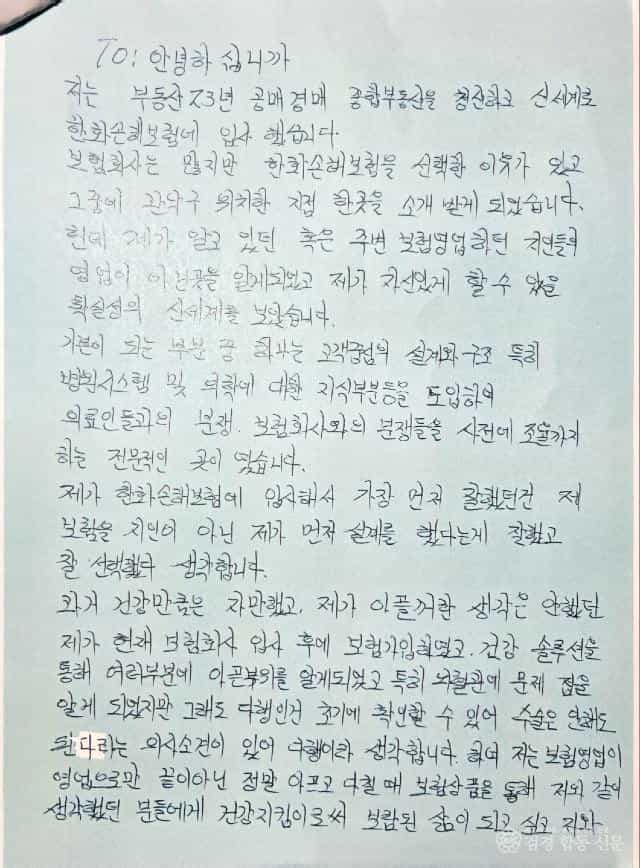 TO: 안녕하 십니까
저는 부동산 23년 공매경매 종합부동산을 청산하고 신세계로
한화손해보험에 입사 했습니다.
보험회사는 많지만 한화손해보험을 선택한 이유가 있고
그중에 관악구 위치한 지점 한곳을 소개 받게 되었습니다.
헌데 제가 알고 있던 혹은 주변 보험영업하던 지인들의
영업이 아닌곳을 알게되었고 제가 자신있게 할 수 있을
확실성의 신세계를 보았습니다.
기본이 되는 부분 중 하나는 고객중점의 설계와 구조 특히
병원시스템 및 의학에 대한 지식부분등을 도입하여
의료인들과의 분쟁. 보험회사와의 분쟁들을 사전에 조율까지
하는 전문적인 곳이 였습니다.
제가 한화손해보험에 입사해서 가장 먼저 잘했던건 제
보험을 지인이 아닌 제가 먼저 설계를 했다는게 잘했고
잘 선택했다 생각합니다.
과거 건강만큼은 자만했고. 제가 아플거란 생각은 안했던
제가 현재 보험회사 입사 후에 보험가입하였고. 건강 솔루션을
통해 여러부분에 아픈부위를 알게되었고 특히 뇌혈관에 문제 점을
알게 되었지만 그래도 다행인건 초기에 확인할 수 있어 수술은 안해도
된다라는 의사소견이 있어 다행이라 생각합니다. 하여 저는 보험영업이
영업으로만 끝이아닌 정말 아프고 다칠 때 보험상품을 통해 저와 같이
생각했던 분들에게 건강지킴이로써 보람된 삶이 되고 싶고 저와
검경 합동 신문